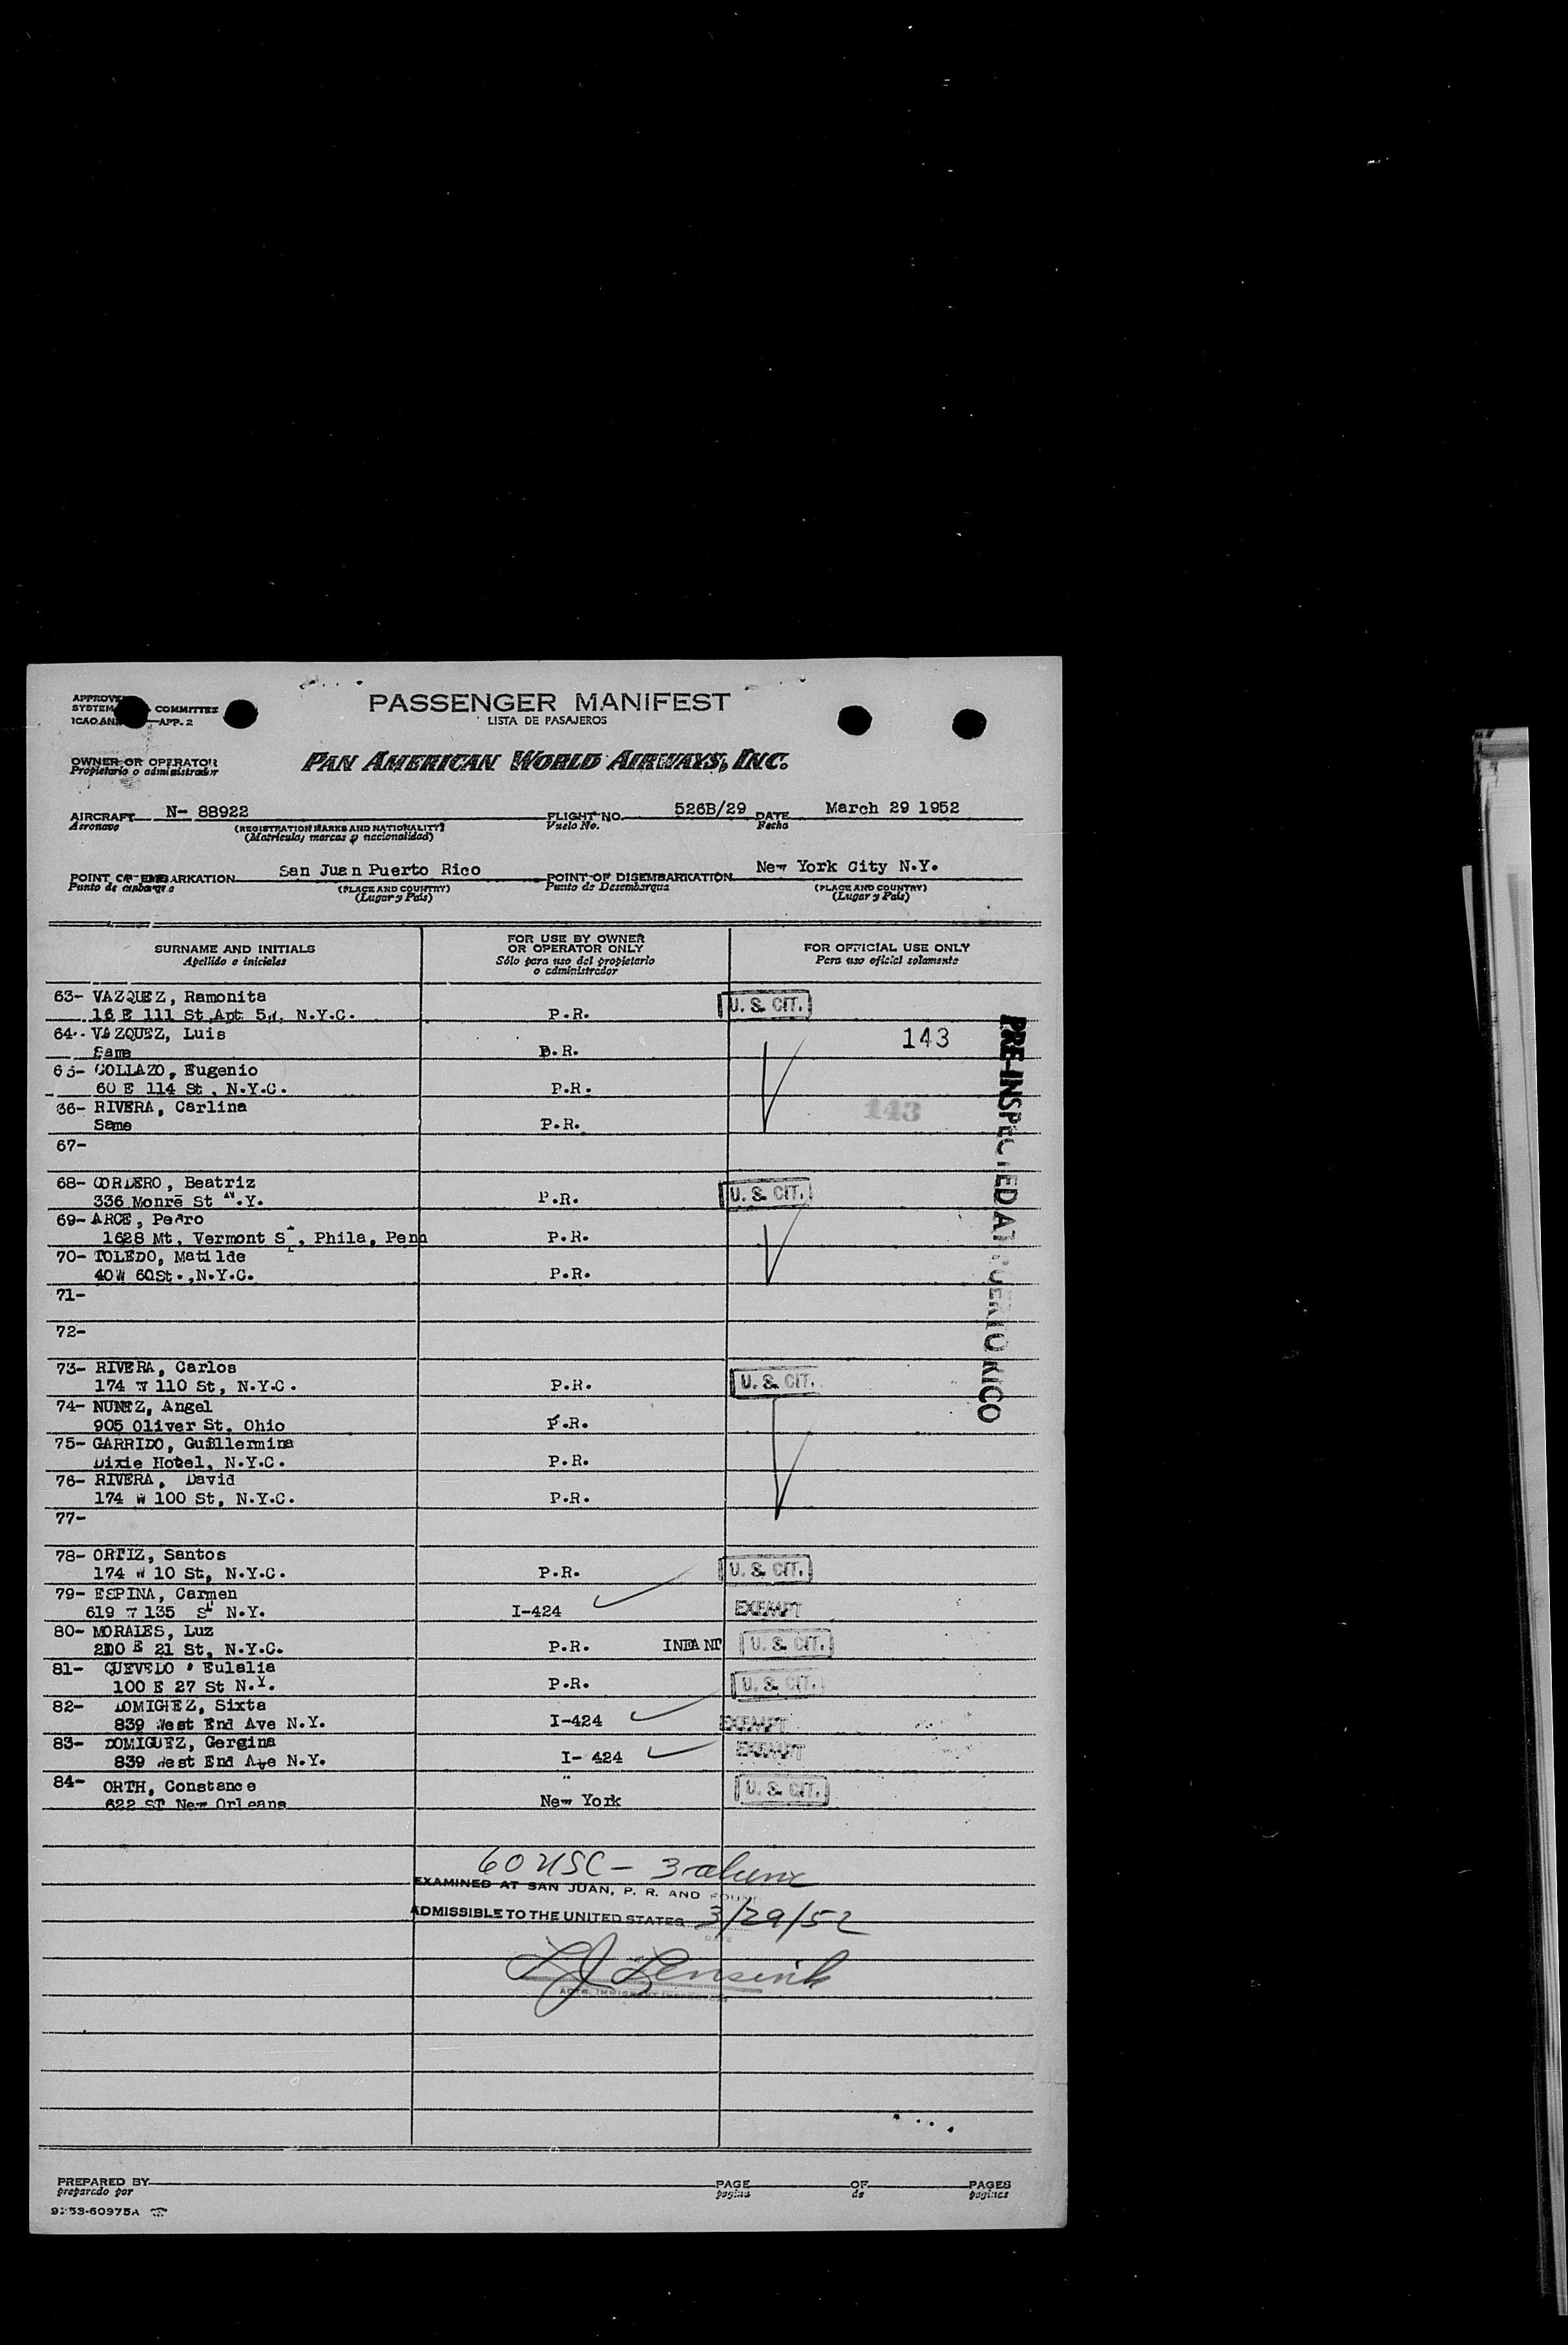 PASSENGER MANIFEST
LISTA DE PASAJEROS
SYSTEM COMMITTEE
APP. 2
OWNER OR OPERATOR
Propietario o administrador
PAN AMERICAN WORLD AIRWAYS, INC.
AIRCRAFT N- 88922 FLIGHT NO. 526B/29 DATE March 29 1952
Aeronave (REGISTRATION MARKS AND NATIONALITY) Vuelo No. Fecha
(Matricula, marcas y nacionalidad)
POINT OF EMBARKATION San Juan Puerto Rico POINT OF DISEMBARKATION New York City N.Y.
Punto de embarque (PLACE AND COUNTRY) Punto de Desembarque (PLACE AND COUNTRY)
(Lugar y País) (Lugar y País)
SURNAME AND INITIALS FOR USE BY OWNER OR OPERATOR ONLY FOR OFFICIAL USE ONLY
Apellido e iniciales Sólo para uso del propietario o administrador Para uso oficial solamente
63- VAZQUEZ, Ramonita
16 E 111 St Apt N.Y.C. P.R. U. S. CIT.
64- VAZQUEZ, Luis 143
Same P.R.
65- COLLAZO, Eugenio
60 E 114 St, N.Y.C. P.R.
66- RIVERA, Carlina 143
Same P.R.
67-
68- CORDERO, Beatriz
336 Monre St N.Y. P.R. U. S. CIT.
69- ARCE, Pedro
1628 Mt, Vermont St, Phila, Penn P.R.
70- TOLEDO, Matilde
40W 60St.,N.Y.C. P.R.
71-
72-
73- RIVERA, Carlos
174 W 110 St, N.Y.C. P.R. U. S. CIT.
74- NUNEZ, Angel
905 Oliver St. Ohio P.R.
75- GARRIDO, Guillermina
Dixie Hotel, N.Y.C. P.R.
76- RIVERA, David
174 W 100 St, N.Y.C. P.R.
77-
78- ORTIZ, Santos
174 W 10 St, N.Y.C. P.R. U. S. CIT.
79- ESPINA, Carmen
619 W 135 St N.Y. I-424 EXEMPT
80- MORALES, Luz
210 E 21 St, N.Y.C. P.R. INFANT U. S. CIT.
81- QUEVEDO, Eulalia
100 E 27 St N.Y. P.R. U. S. CIT.
82- DOMIGHEZ, Sixta
839 West End Ave N.Y. I-424 EXEMPT
83- DOMIGUEZ, Gergina
839 West End Ave N.Y. I- 424 EXEMPT
84- ORTH, Constance
622 ST New Orleans New York U. S. CIT.
PRE-INSPECTED AT PUERTO RICO
60 USC - 3 aliens
EXAMINED AT SAN JUAN, P. R. AND FOUND
ADMISSIBLE TO THE UNITED STATES 3/29/52
DATE
L J Lensink
PREPARED BY PAGE OF PAGES
preparado por pagina de paginas